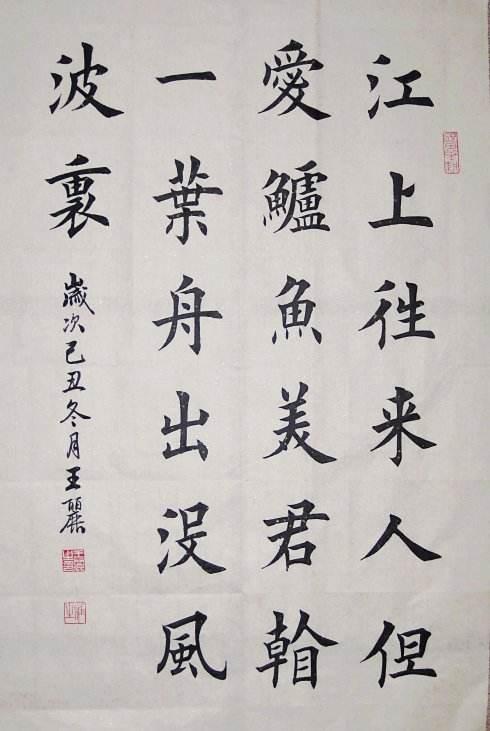 江上徃来人但
愛鱸魚美君看
一葉舟出没風
波裏
歲次己丑冬月王麗